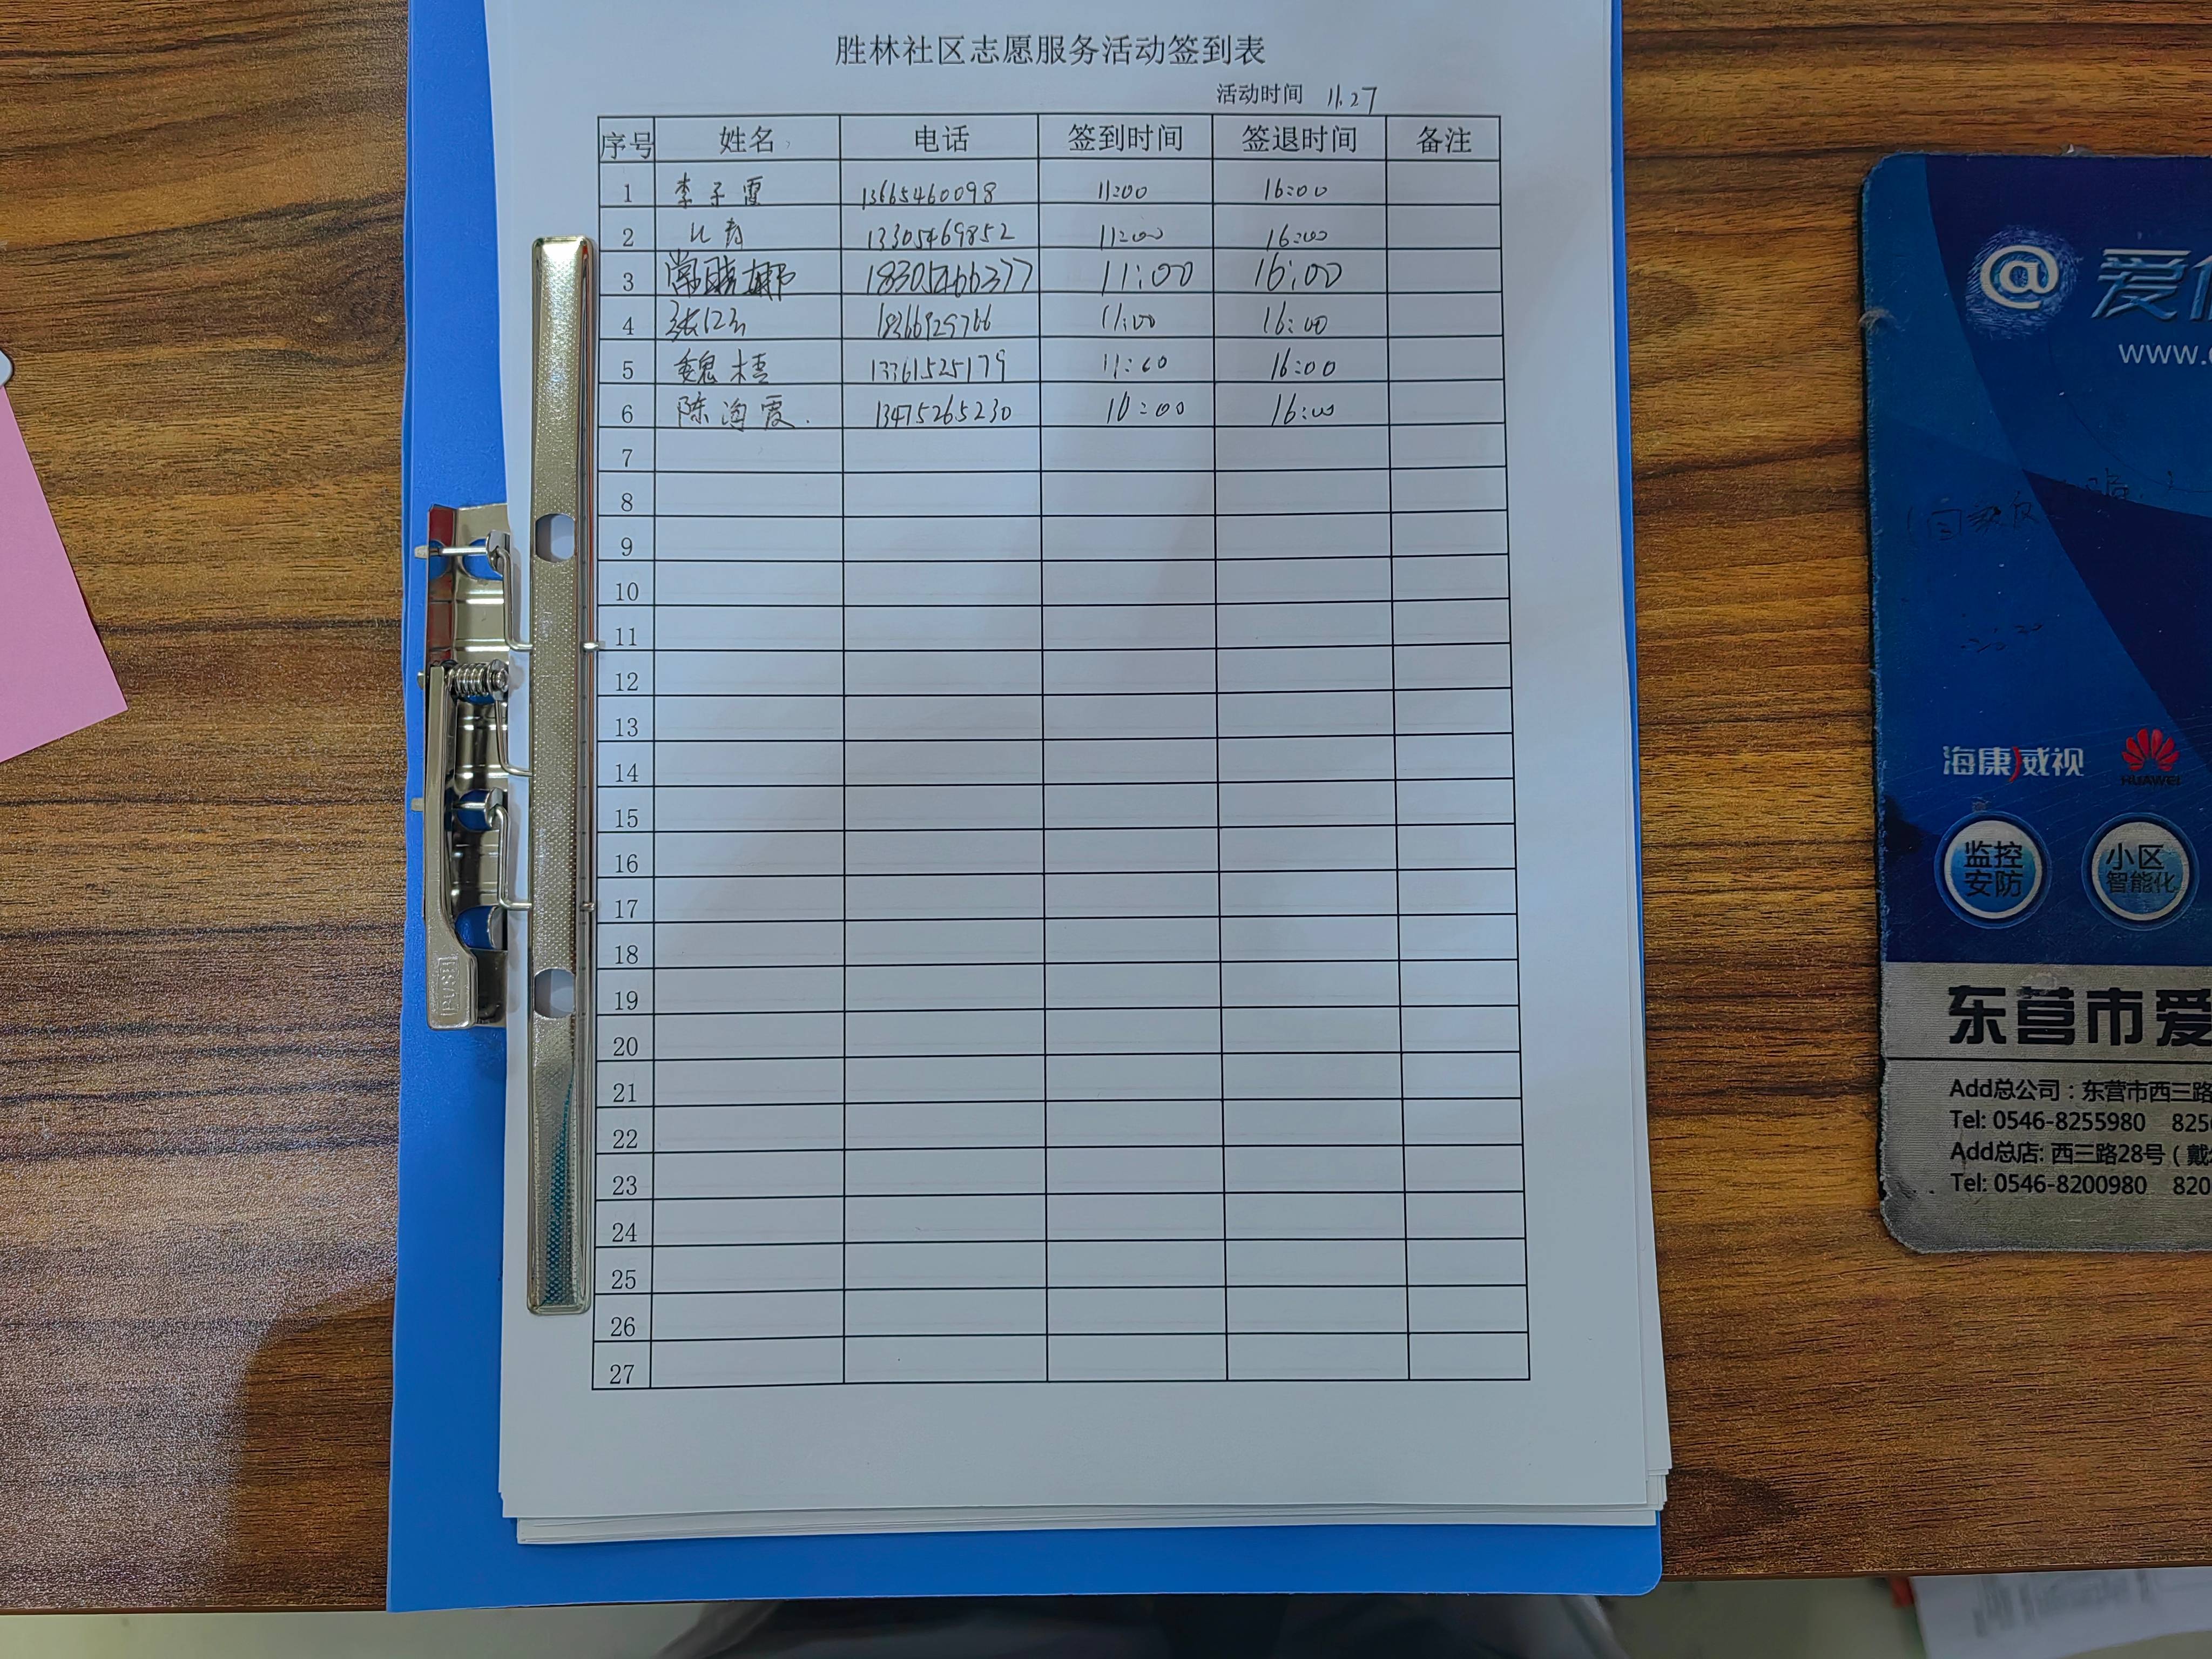 胜林社区志愿服务活动签到表
活动时间 11.27
序号 姓名 电话 签到时间 签退时间 备注
1 李子霞 13665460098 11:00 16:00
2 13305469852 11:00 16:00
3 常晓娜 18305466377 11:00 16:00
4 18366929766 11:00 16:00
5 魏梧 13361525179 11:00 16:00
6 陈海霞. 13475265230 10:00 16:00
7
8
9
10
11
12
13
14
15
16
17
18
19
20
21
22
23
24
25
26
27
PUSH
@ 爱
www.
海康威视 HUAWEI
监控安防
小区智能化
东营市爱
Add总公司：东营市西三路
Tel: 0546-8255980 825
Add总店: 西三路28号（戴
Tel: 0546-8200980 820